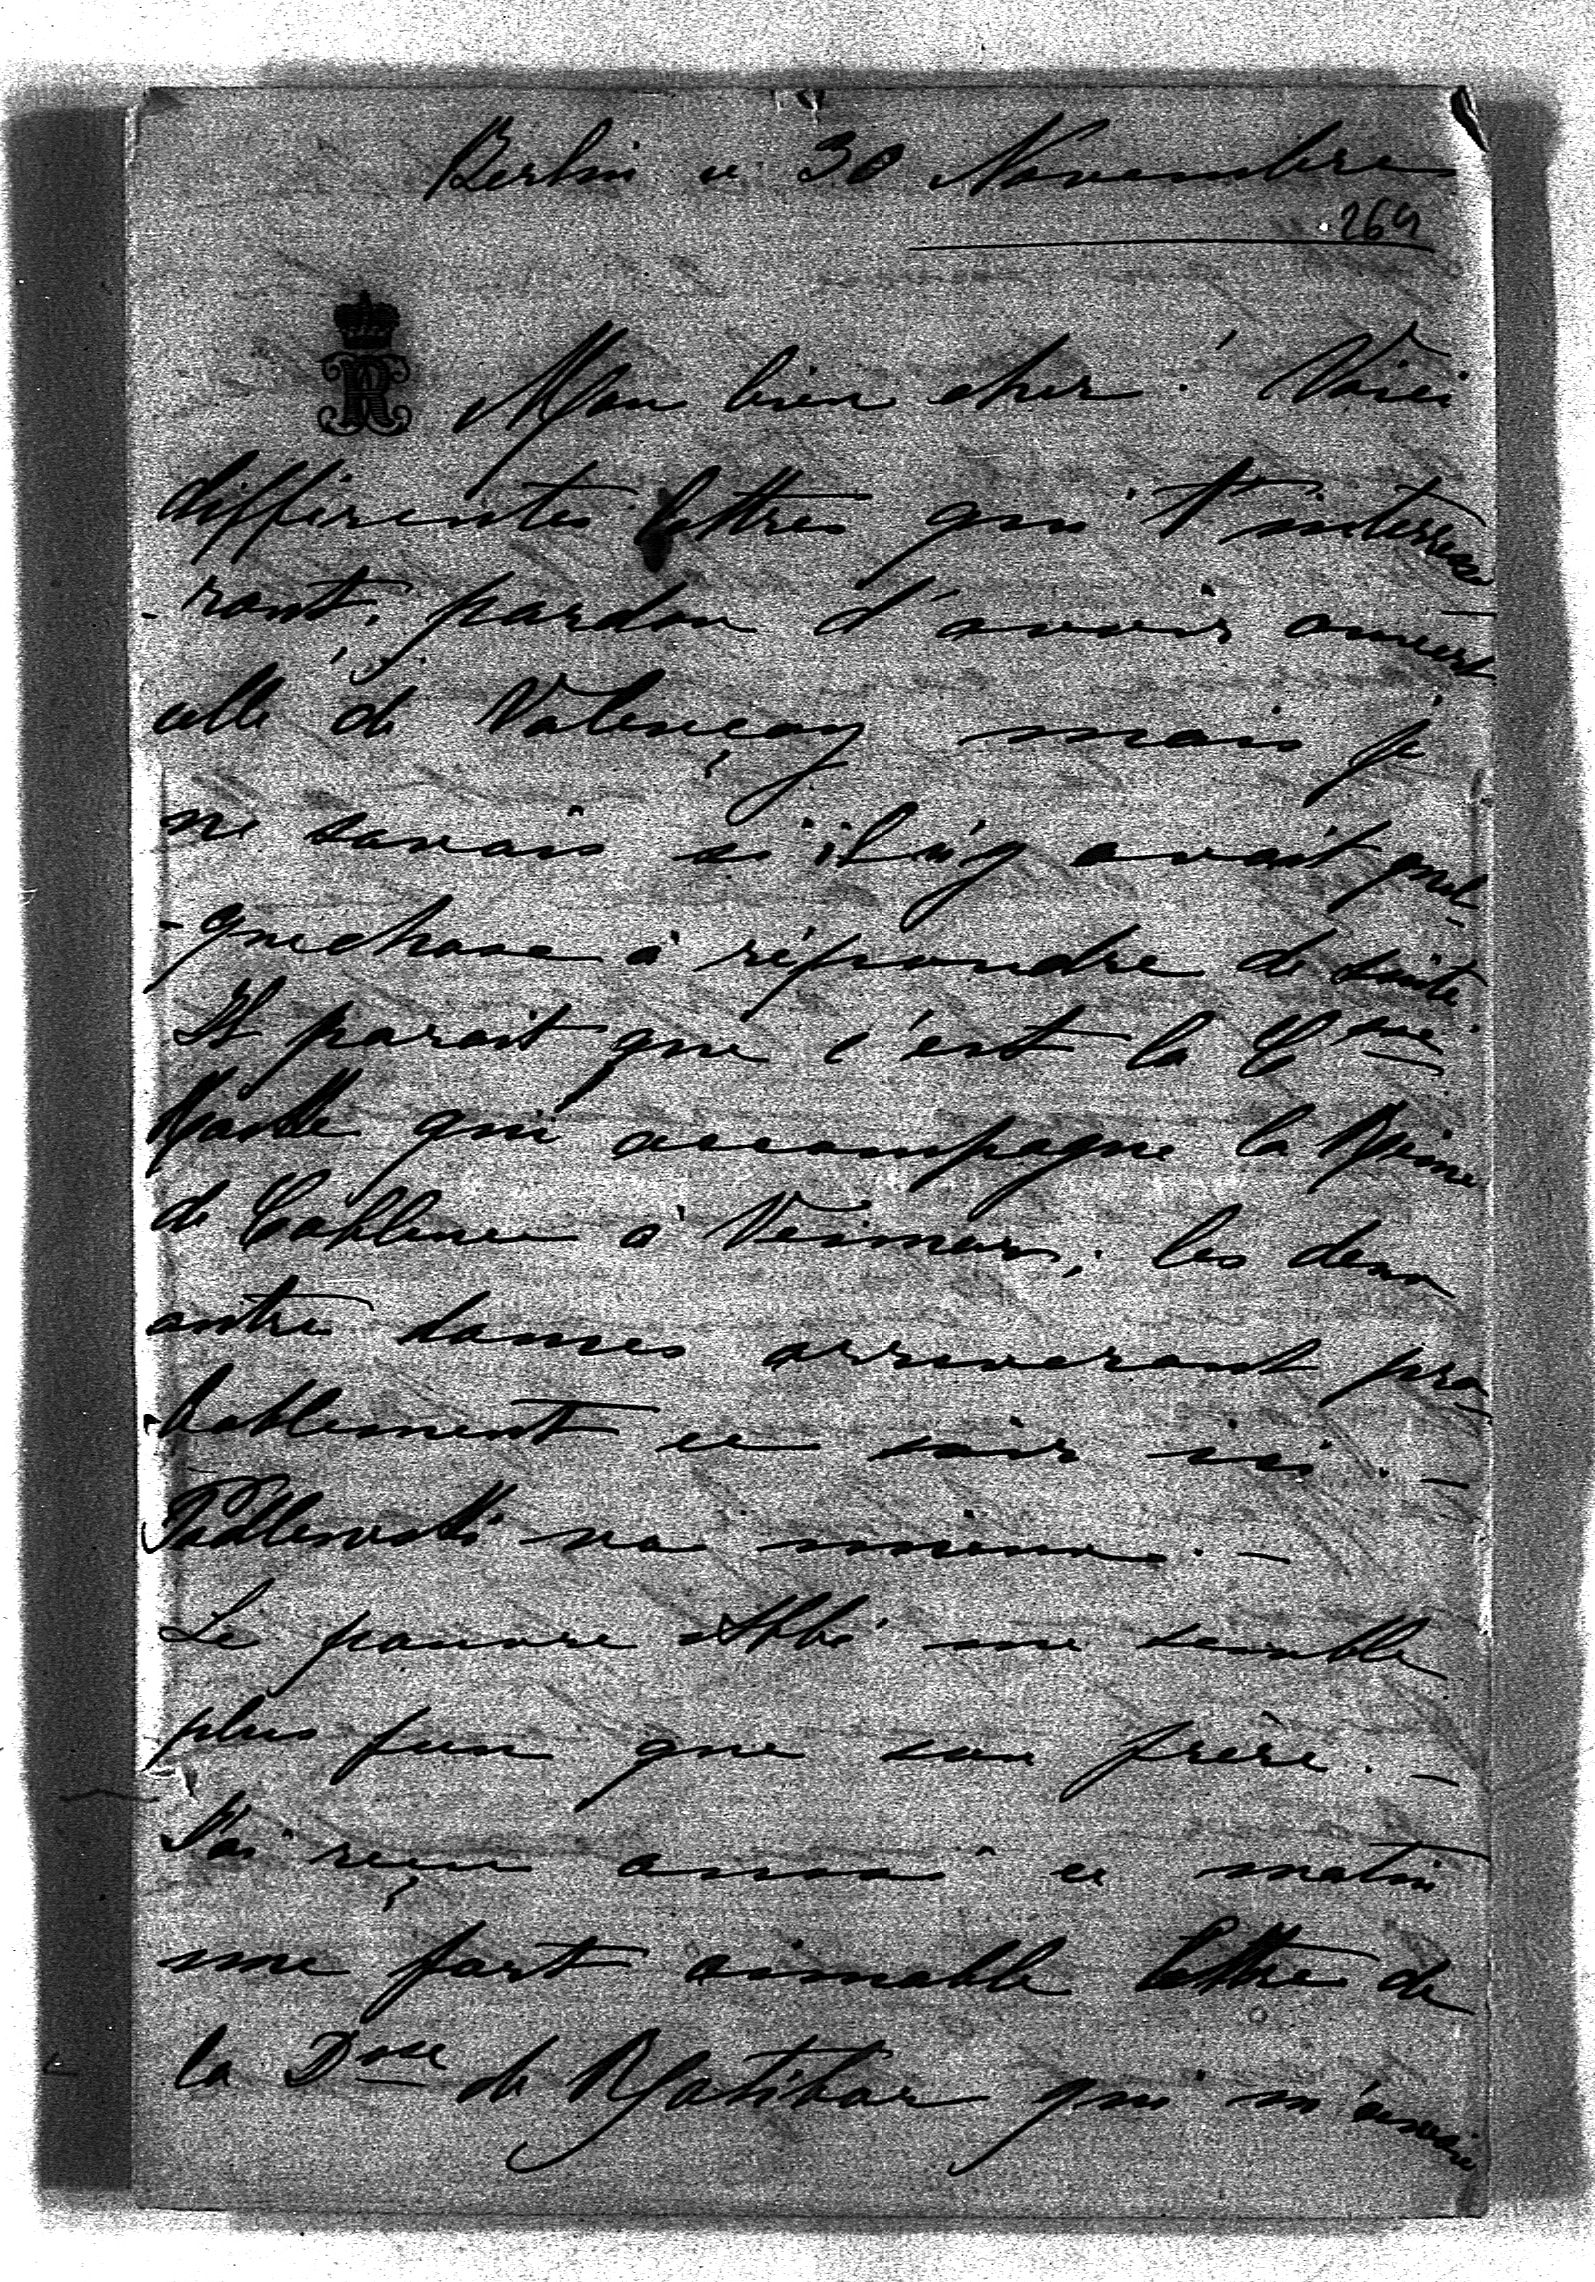 Berlin ce 30 Novembre
269
Mon bien cher! Voici
différentes lettres qui t'interesse
-ront, pardon d'avoir ouvert
celle de Valençay mais je
ne savais si il n'y avait quel-
-quechose à répondre de suite.
Il parait que c'est la Ctesse
Haake qui accompagne la Reine
de Coblence à Weimar, les deux
autre dames arriveront pro-
-bablement ce soir ici. -
Podlewski va mieux. -
Le pauvre Abbé me semble
plus fun que son frère. -
J'ai reçu aussi ce matin
une fort aimable lettre de
la Dsse de Ratibor qui m'envoie